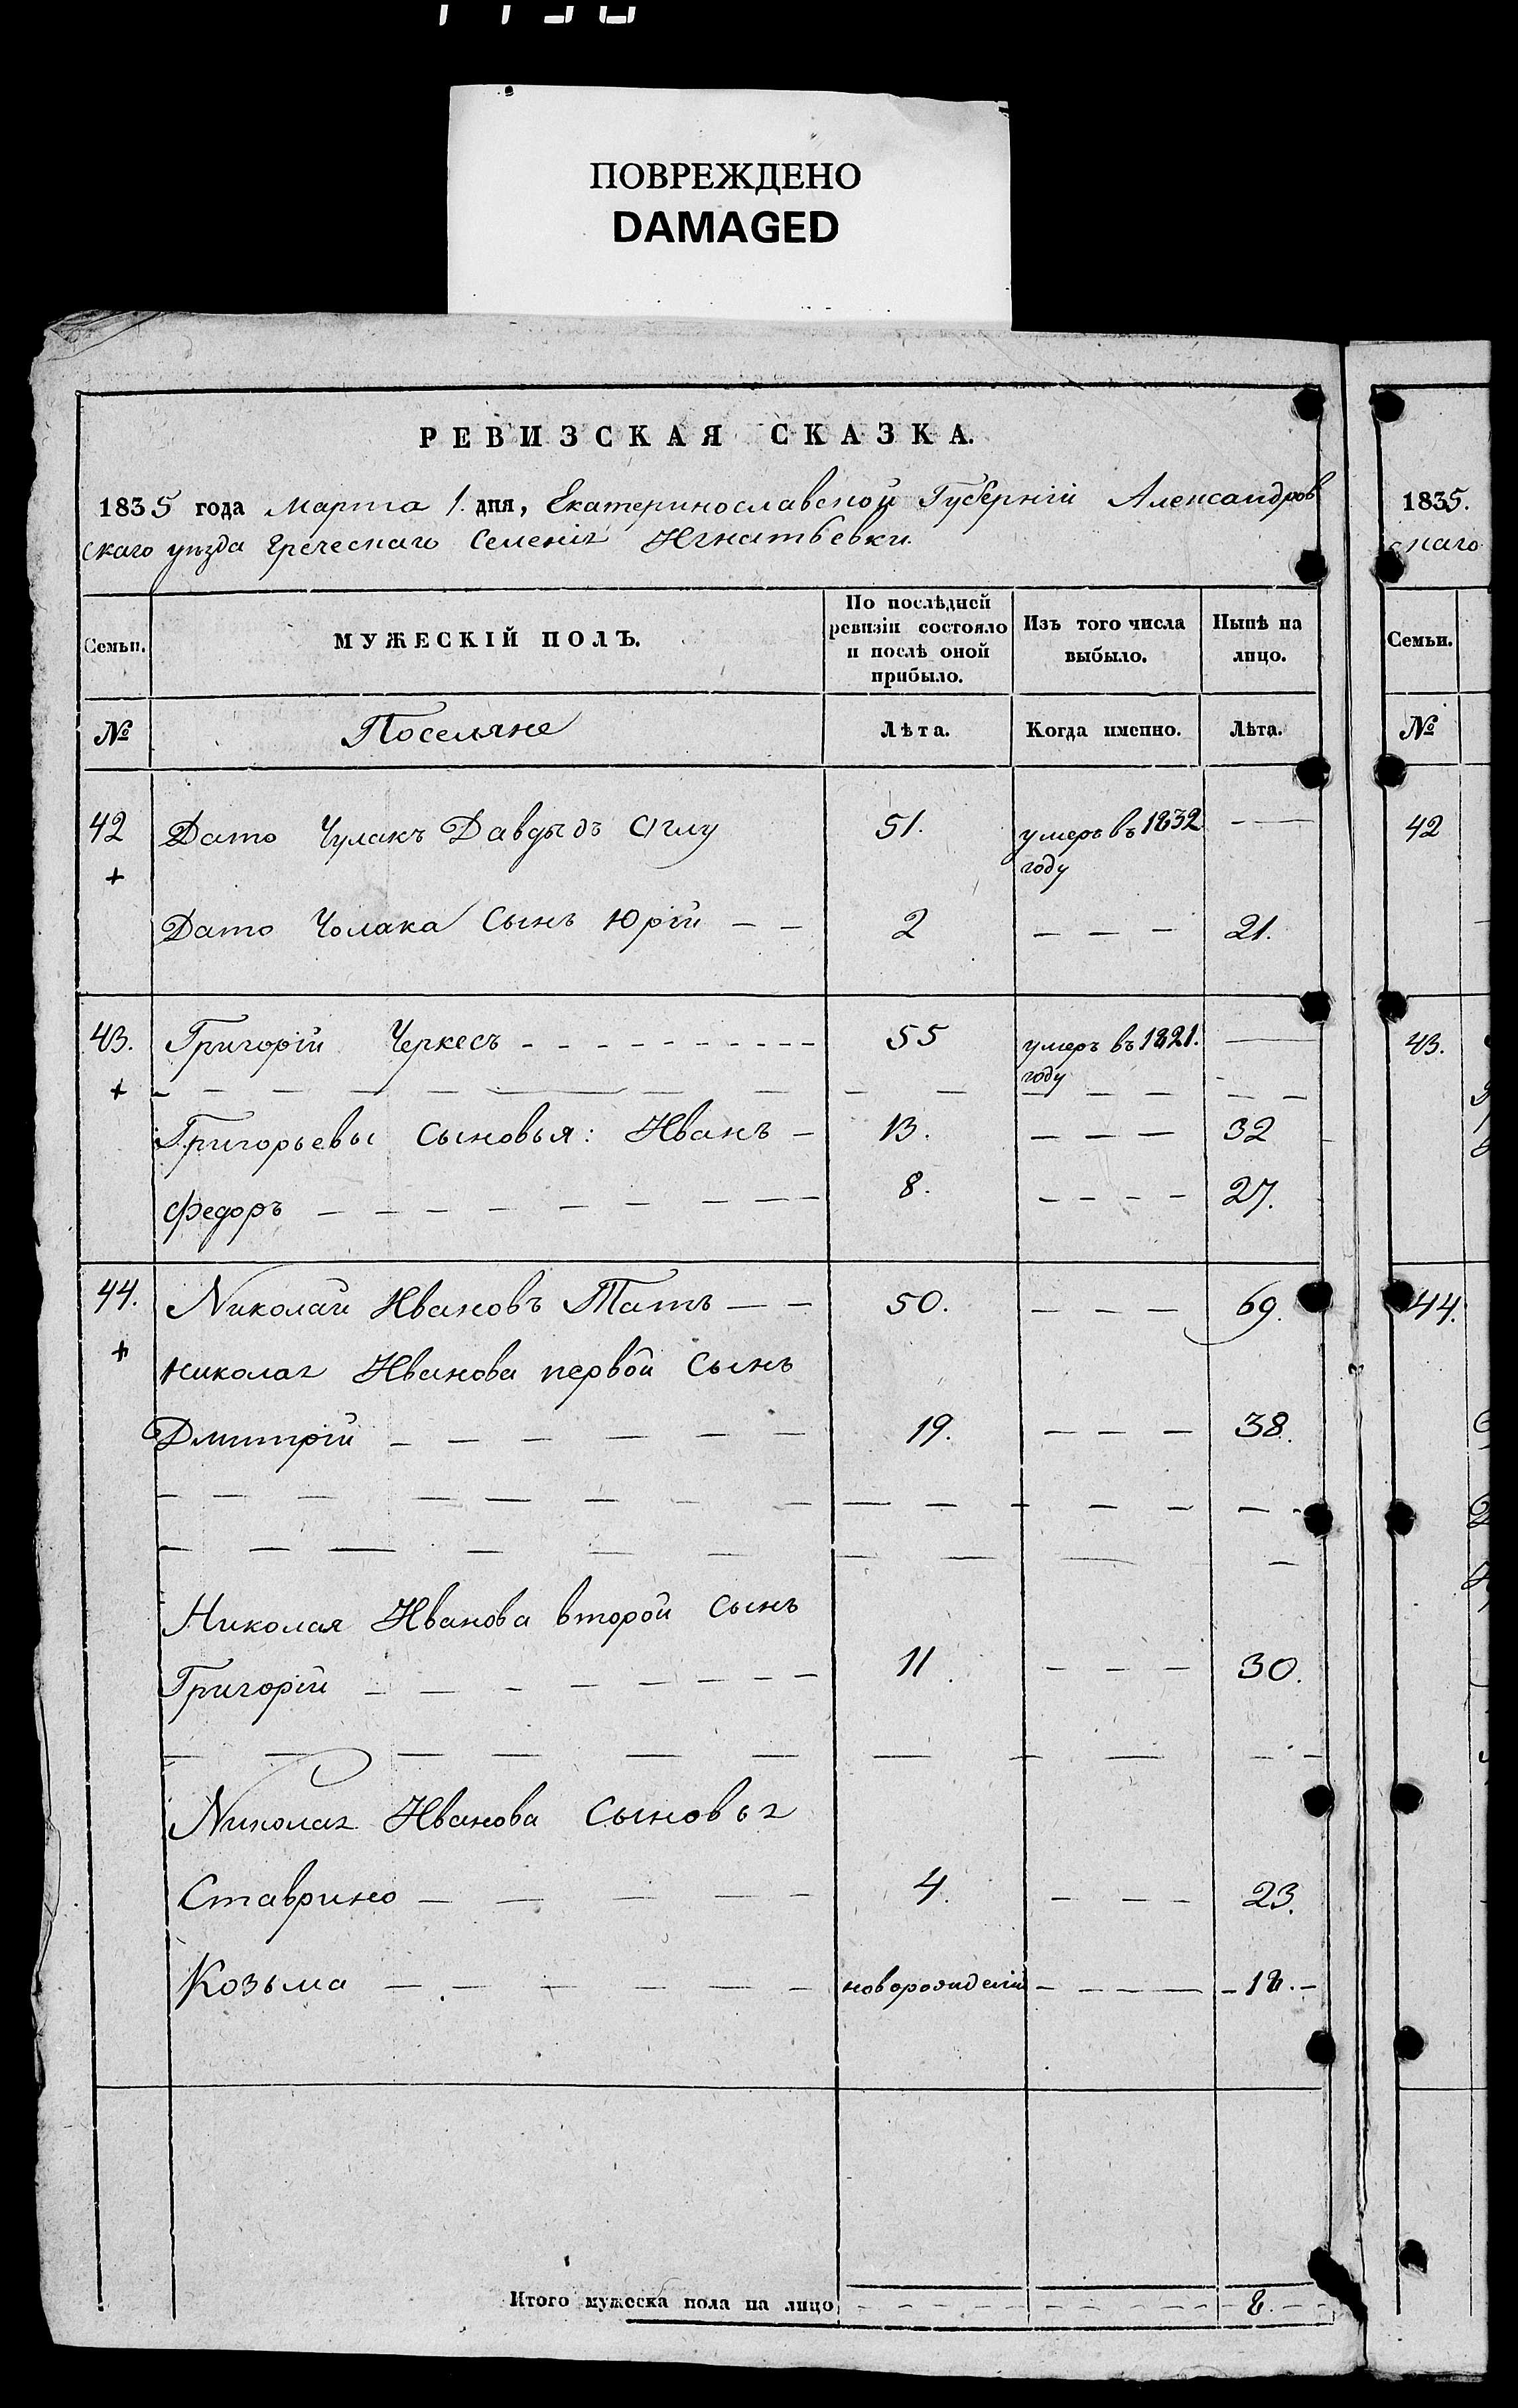 ПОВРЕЖДЕНО
DAMAGED
РЕВИЗСКАЯ СКАЗКА.
1835 года Марта 1. дня, Екатеринославской Губерніи Александров
скаго уѣзда Греческаго Селенія Игнатьевки
Семьи. МУЖЕСКІЙ ПОЛЪ. По послѣдней ревизіи состояло и послѣ оной прибыло. Изъ того числа выбыло. Нынѣ на лицо.
№ Поселяне Лѣта. Когда именно. Лѣта.
42 Дато Чулакъ Давыдъ Оглу 51. умеръ въ 1832 году —
+
Дато Чолака Сынъ Юрій — — 2 — — — 21.
43. Григорій Черкесъ - - - - - - - - - - 55 умеръ въ 1821. году —
+
Григорьевы Сыновья: Иванъ — 13. — — — 32
Федоръ — — — — — — — — — 8. — — — — 27.
44. Николай Ивановъ Татъ — — 50. — — — 69.
+ Николая Иванова первой Сынъ
Дмитрій — — — — — — — 19. — — — 38.
Николая Иванова второй Сынъ
Григорій — — — — — — — — 11. — — — 30.
Николая Иванова Сыновья
Ставрино — — — — — 4. — — — 23.
Козьма — — — — — — новорожденій — — — — - 18. -
Итого мужеска пола на лицо 8.
1835.
скаго
Семьи.
№
42
43.
44.